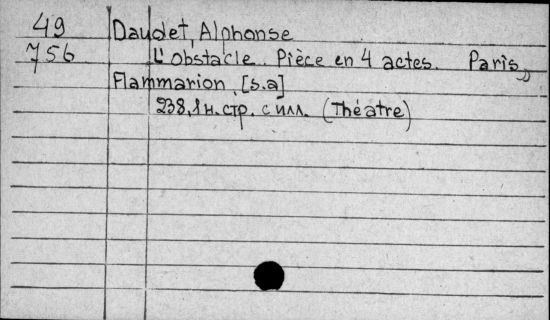 49 Daudet, Alphonse
756 L'obstacle. Pièce en 4 actes. Paris,
Flammarion, [s.a]
238,1 н.стр. с илл. (Théatre)